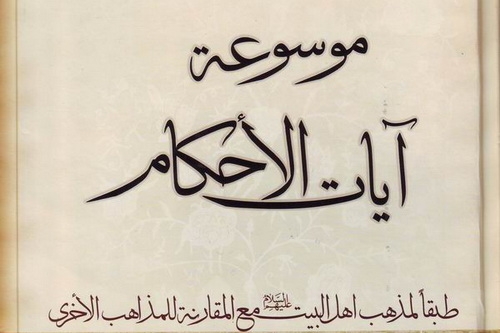 موسوعة
آيات الأحكام
طبقاً لمذهب اهل البيت عليهم السلام مع المقارنة للمذاهب الأخرى